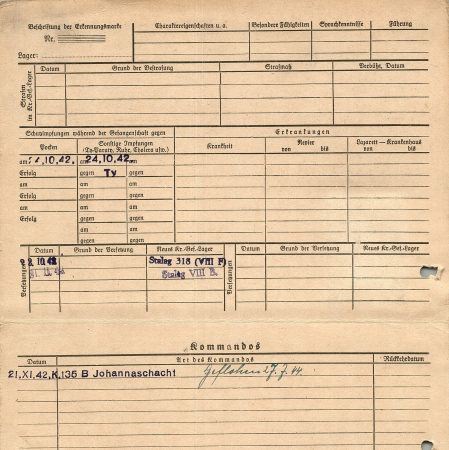 Beschriftung der Erkennungsmarke
Nr.
Lager:
Charaktereigenschaften u. a.
Besondere Fähigkeiten
Sprachkenntnisse
Führung
Strafen in Kr.-Gef.-Lager
Datum
Grund der Bestrafung
Strafmaß
Verbüßt, Datum
Schutzimpfungen während der Gefangenschaft gegen
Erkrankungen
Pocken
Sonstige Impfungen
(Ty-Paraty, Ruhr, Cholera usw.)
Krankheit
Revier
von bis
Lazarett – Krankenhaus
von bis
am 24.10.42. am 24.10.42. am
Erfolg gegen Ty gegen
am am am
Erfolg gegen gegen
am am am
Erfolg gegen gegen
am am
gegen gegen
Versetzungen
Datum
Grund der Versetzung
Neues Kr.-Gef.-Lager
Versetzungen
Datum
Grund der Versetzung
Neues Kr.-Gef.-Lager
10.42 Stalag 318 (VIII F)
Stalag VIII B.
Kommandos
Datum
Art des Kommandos
Rückkehrdatum
21.XI.42. K.135 B Johannaschacht Geflohen 27.7.44.